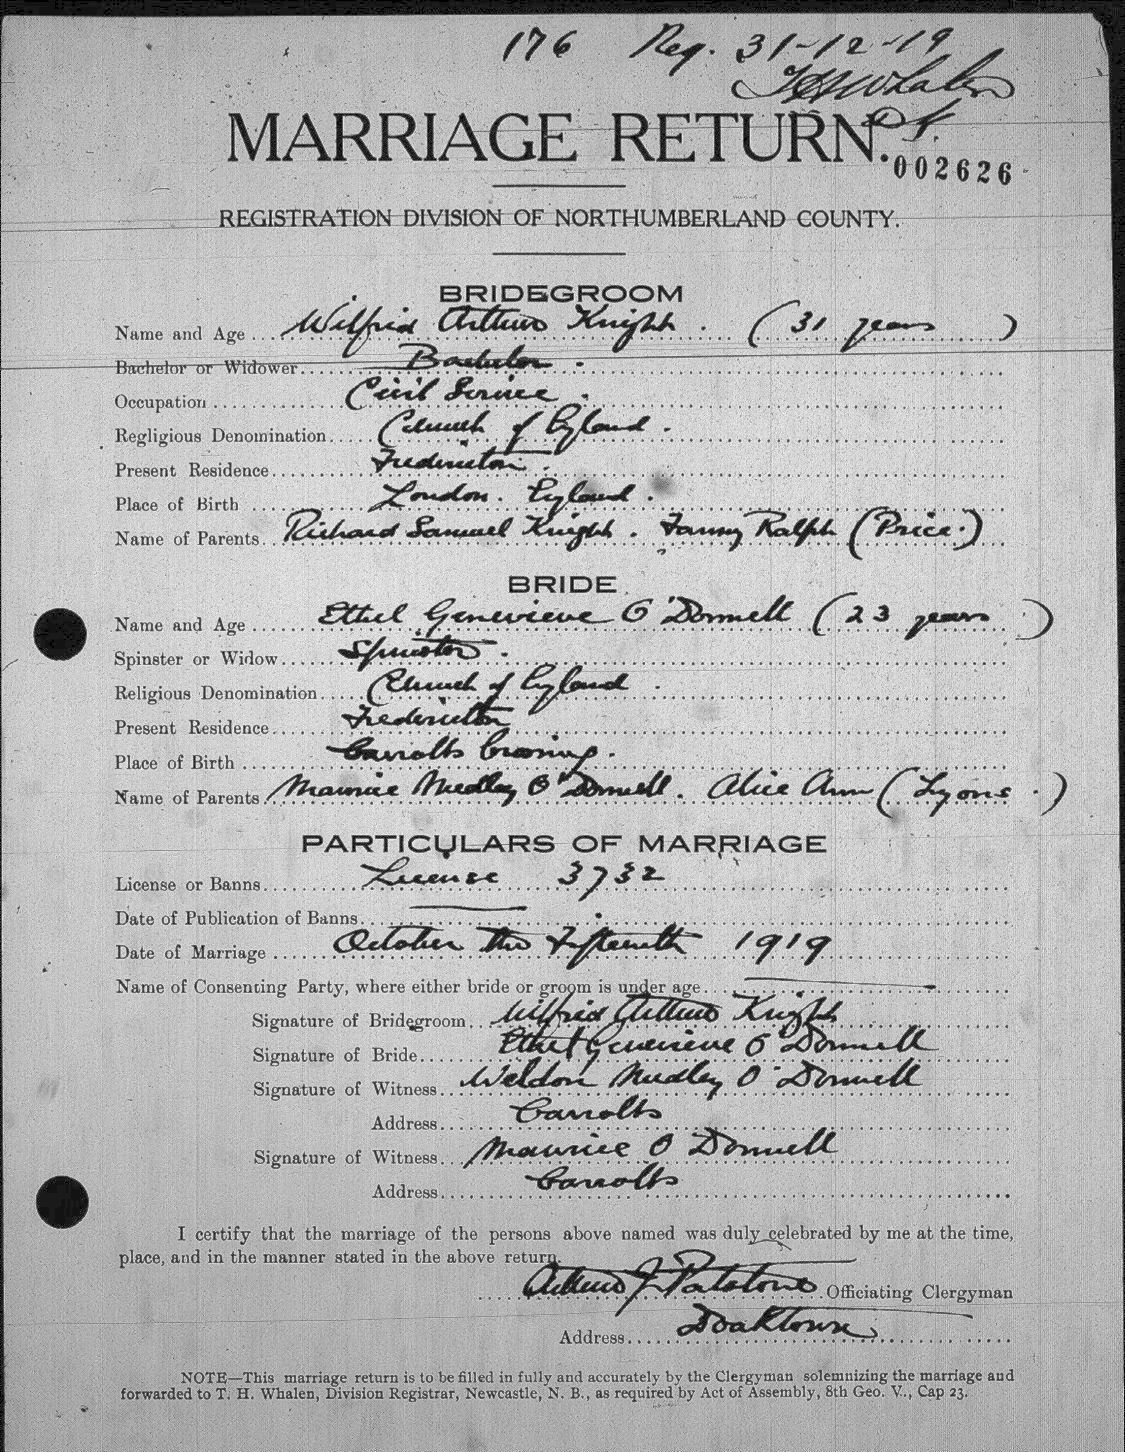 176 Reg. 31-12-19
T H Whalen
MARRIAGE RETURN.
002626
REGISTRATION DIVISION OF NORTHUMBERLAND COUNTY.
BRIDEGROOM
Name and Age Wilfrid Arthur Knight. (31 years)
Bachelor or Widower Bachelor.
Occupation Civil Service.
Regligious Denomination Church of England.
Present Residence Fredericton.
Place of Birth London. England.
Name of Parents Richard Samuel Knight. Fanny Ralph (Price.)
BRIDE
Name and Age Ethel Genevieve O'Donnell (23 years)
Spinster or Widow Spinster.
Religious Denomination Church of England.
Present Residence Fredericton
Place of Birth Carrolls Crossing.
Name of Parents Maurice Medley O'Donnell. Alice Ann (Lyons.)
PARTICULARS OF MARRIAGE
License or Banns License 3732
Date of Publication of Banns
Date of Marriage October the Fifteenth 1919
Name of Consenting Party, where either bride or groom is under age
Signature of Bridegroom Wilfrid Arthur Knight
Signature of Bride Ethel Genevieve O'Donnell
Signature of Witness Weldon Medley O'Donnell
Address Carrolls
Signature of Witness Maurice O'Donnell
Address Carrolls
I certify that the marriage of the persons above named was duly celebrated by me at the time,
place, and in the manner stated in the above return.
Arthur J. Patstone Officiating Clergyman
Address Doaktown
NOTE—This marriage return is to be filled in fully and accurately by the Clergyman solemnizing the marriage and
forwarded to T. H. Whalen, Division Registrar, Newcastle, N. B., as required by Act of Assembly, 8th Geo. V., Cap 23.